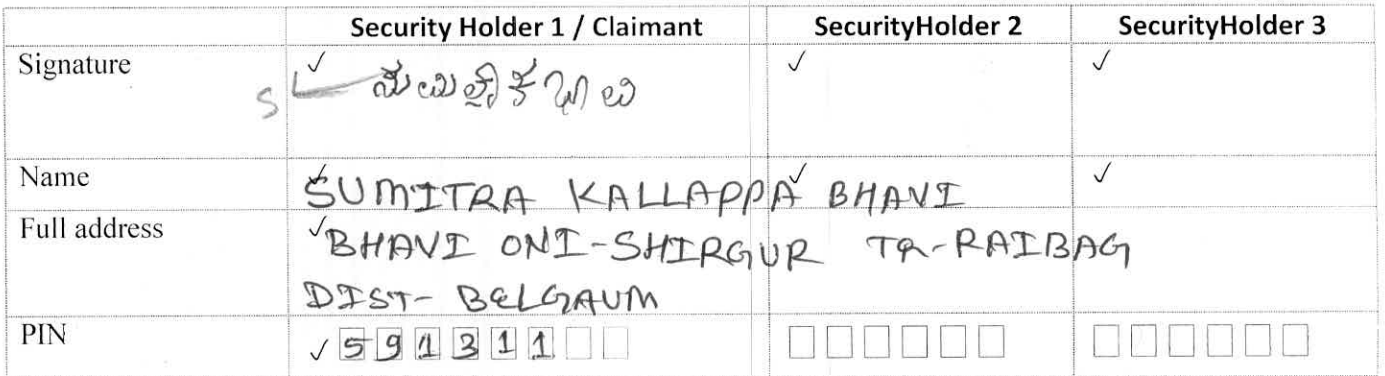 Security Holder 1 / Claimant SecurityHolder 2 SecurityHolder 3
Signature ✓ ✓ ✓
S
Name SUMITRA KALLAPPA BHAVI ✓
Full address ✓ BHAVI ONI-SHIRGUR TQ-RAIBAG
DIST- BELGAUM
PIN ✓ 591311